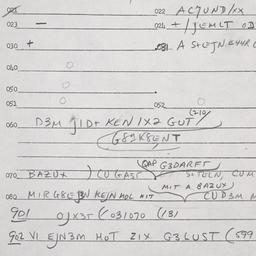 022 ACJUND/XX
023 —
024 + / JEMLT OD
030 +
031. A S+EJN
040
050
051
052
060 D3M JID+ KEN IX2 GUT (210/
G81K8ENT
QAP G3DARFT
070 BAZUX ) CU GAST S+TELN, CUM
MIT A BAZUX
080 MIRG8E KEJN MOL MIT CUD3M M
901 OJX3T (/031070 (/31
902 VI EJN3M HOT ZIX G3LUST (599